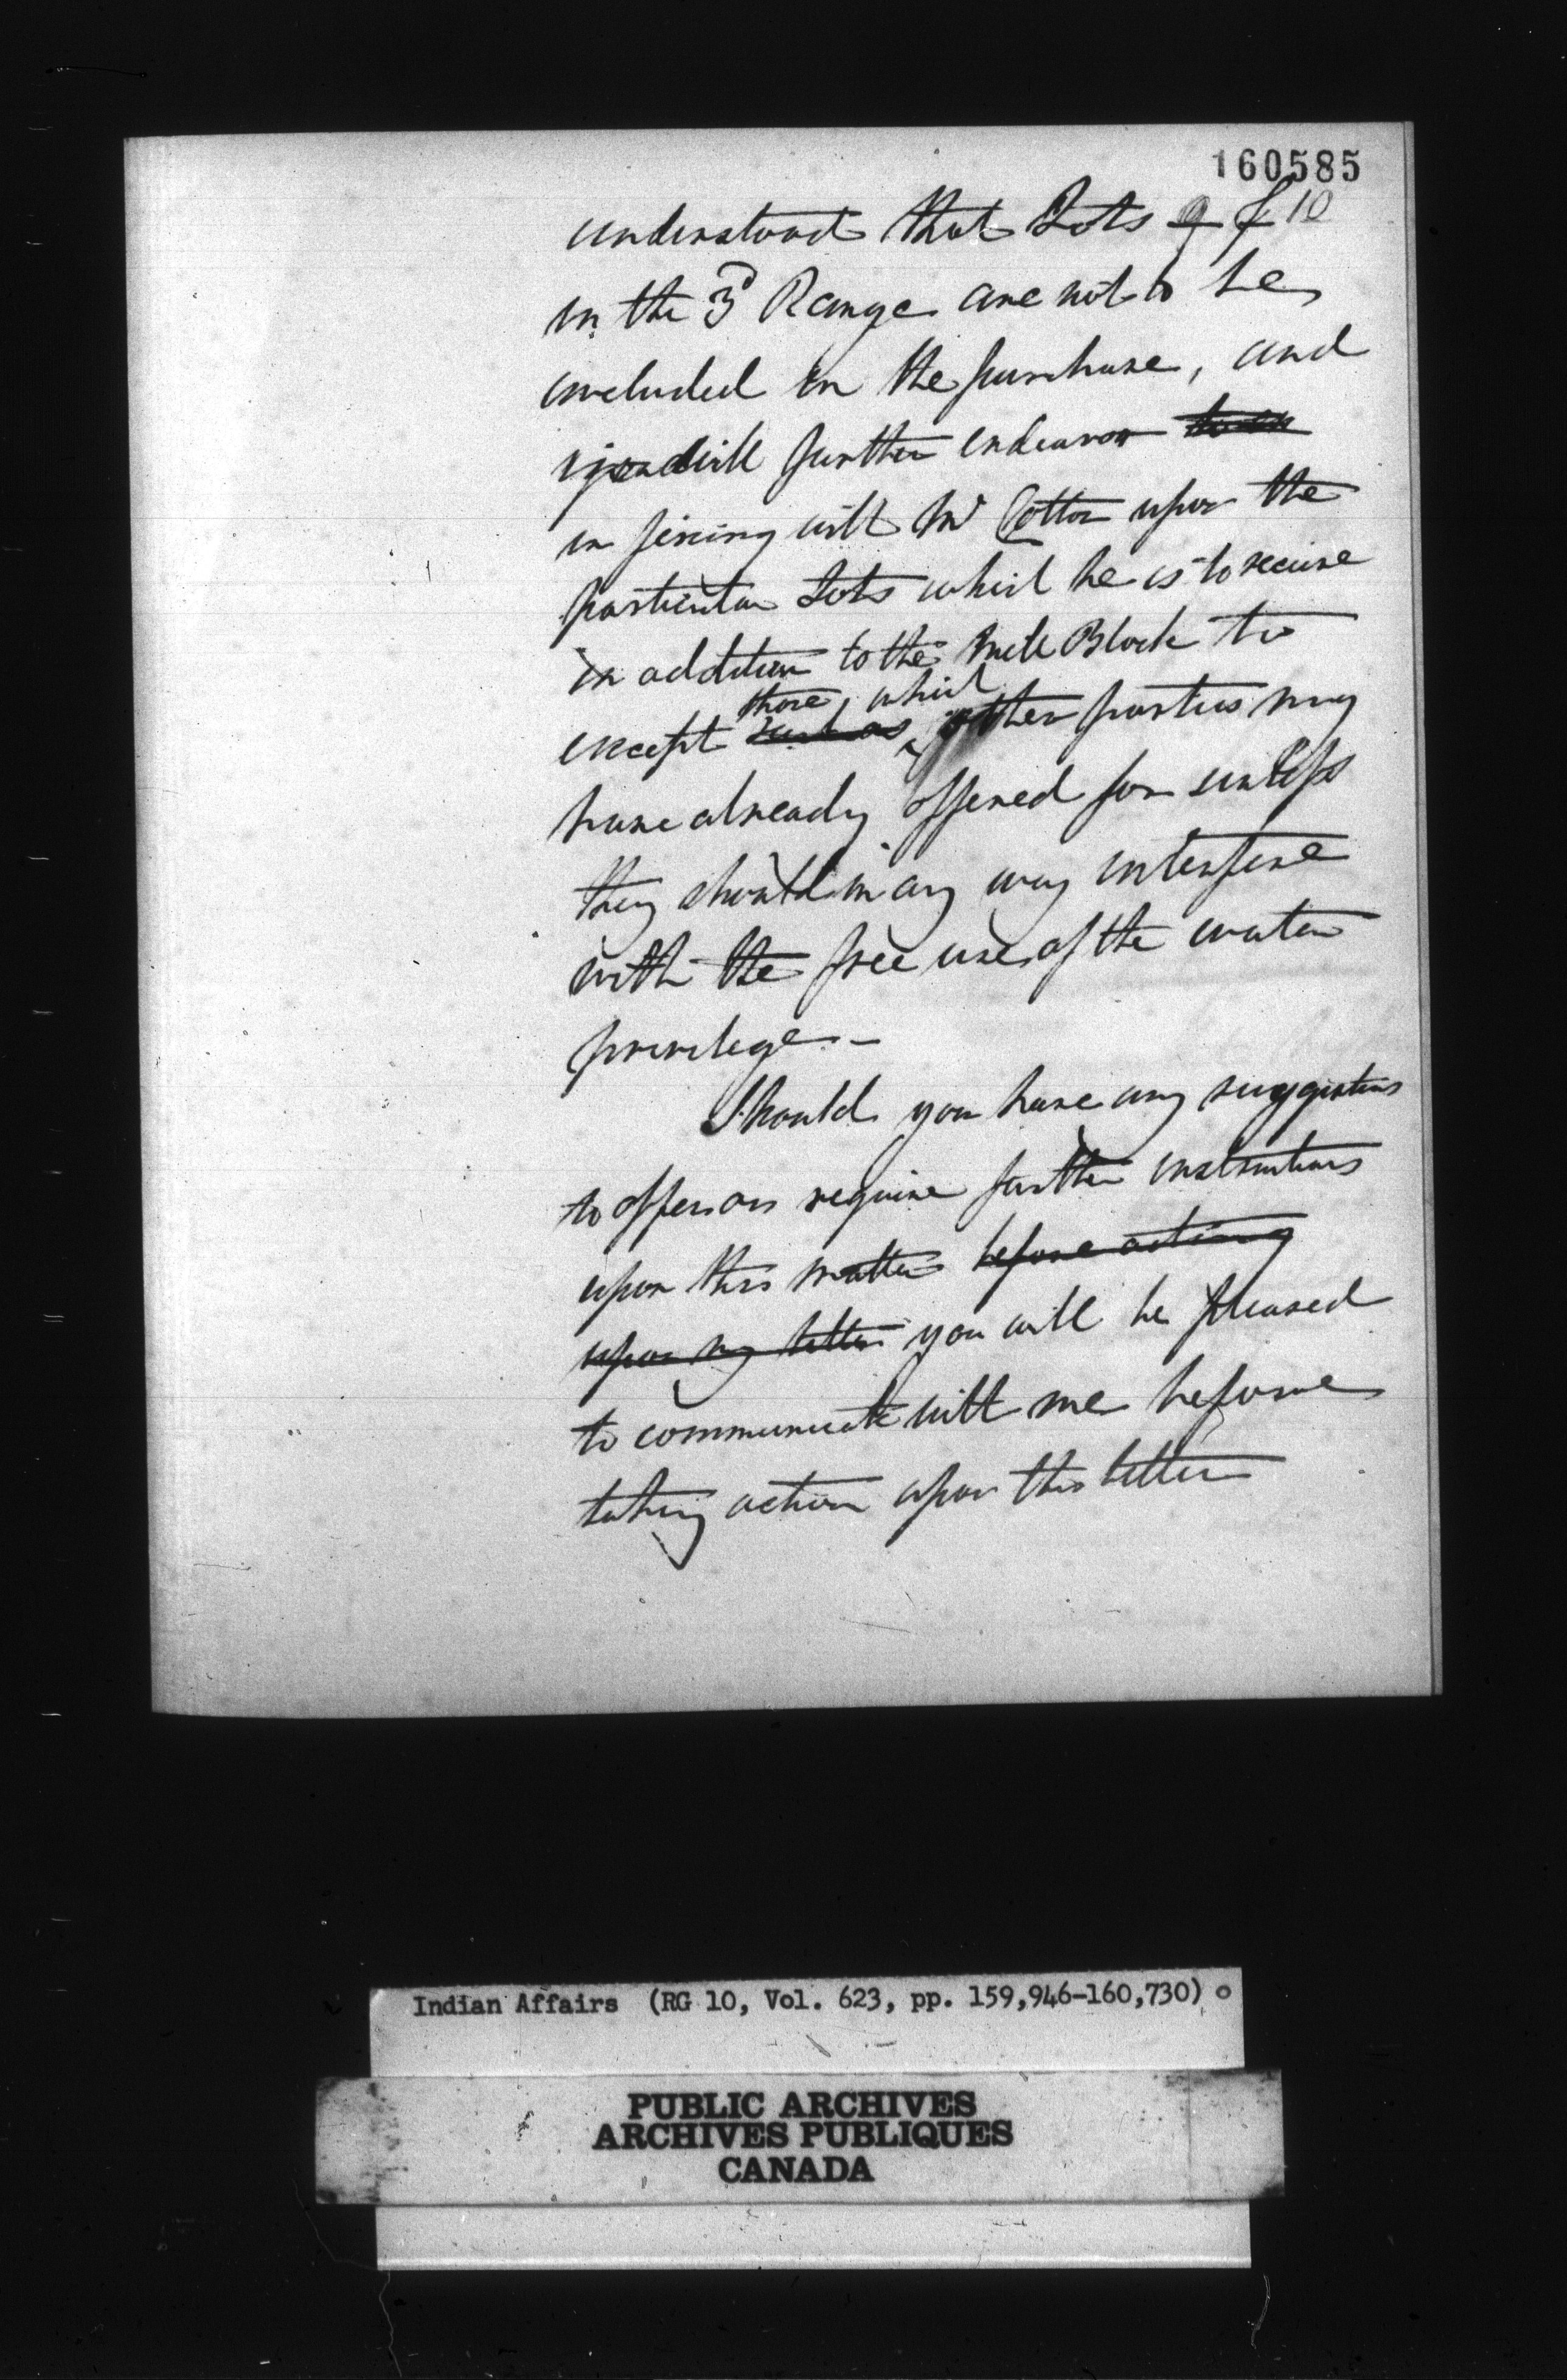 160585
understand that Lots 9 & 10
in the 3d Range are not to be
included in the purchase, and
you will further endeavor
in fixing with Mr Cotton upon the
particular Lots which he is to receive
in addition to the Mill Block to
those, which
except such as other parties may
have already offered for unless
they should in any way interfere
with the free use of the water
privilege -
Should you have any suggestions
to offer or require further instructions
upon this matter before acting
upon my letter you will be pleased
to communicate with me before
taking action upon this letter
Indian Affairs (RG 10, Vol. 623, pp. 159,946-160,730)
PUBLIC ARCHIVES
ARCHIVES PUBLIQUES
CANADA